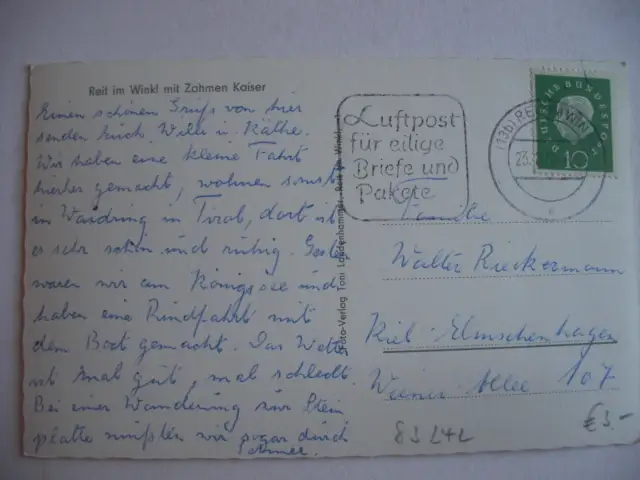 Reit im Winkl mit Zahmen Kaiser
Einen schönen Gruß von hier
senden Euch Willi u. Käthe.
Wir haben eine kleine Fahrt
hierher gemacht, wohnen sonst
in Waidring in Tirol, dort ist
es sehr schön und ruhig. Gestern
waren wir am Königssee und
haben eine Rundfahrt mit
dem Boot gemacht. Das Wetter
ist mal gut, mal schlecht.
Bei einer Wanderung zur Stein
platte mußten wir sogar durch
Schnee.
Foto-Verlag Toni Reit im Winkl
Luftpost
für eilige
Briefe und
Pakete
(13b) REIT IM WINKL
23.
DEUTSCHE BUNDESPOST
10
Familie
Walter Rieckermann
Kiel-Elmschenhagen
Wiener Allee 107
€3.-